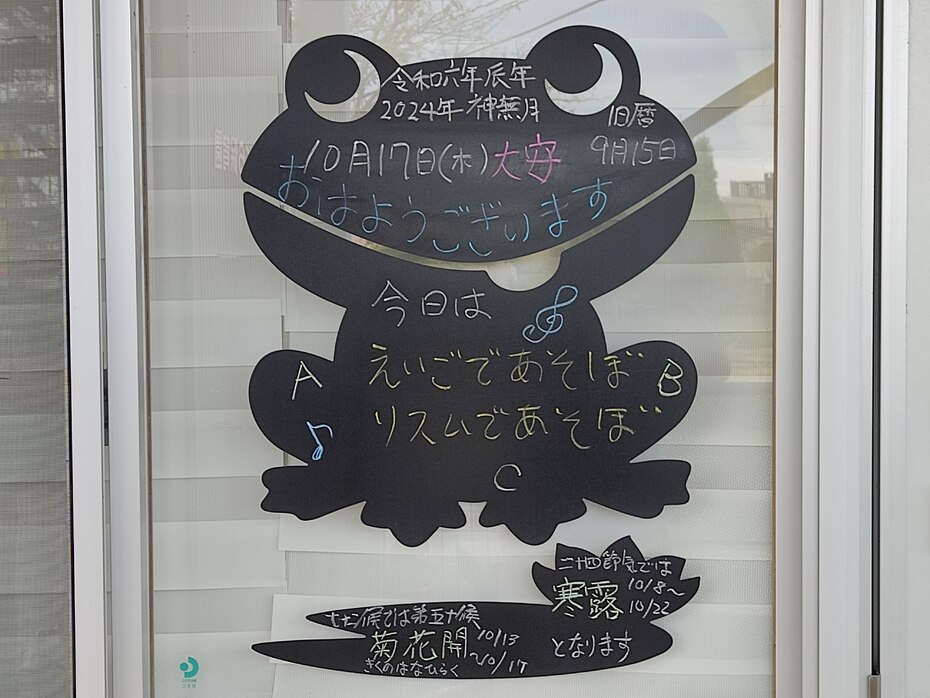 令和六年辰年
2024年 神無月
旧暦
9月15日
10月17日(木)大安
おはようございます
今日は
えいごであそぼ
リズムであそぼ
A
B
C
二十四節気では
寒露 10/8～
10/22
七十二候では第五十候
菊花開 10/13
～10/17
きくのはなひらく
となります